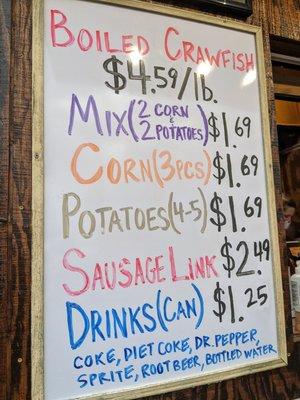 BOILED CRAWFISH
$4.59/lb.
MIX(2 CORN & 2 POTATOES) $1.69
CORN(3PCS) $1.69
POTATOES(4-5) $1.69
SAUSAGE LINK $2.49
DRINKS(CAN) $1.25
COKE, DIET COKE, DR. PEPPER,
SPRITE, ROOT BEER, BOTTLED WATER